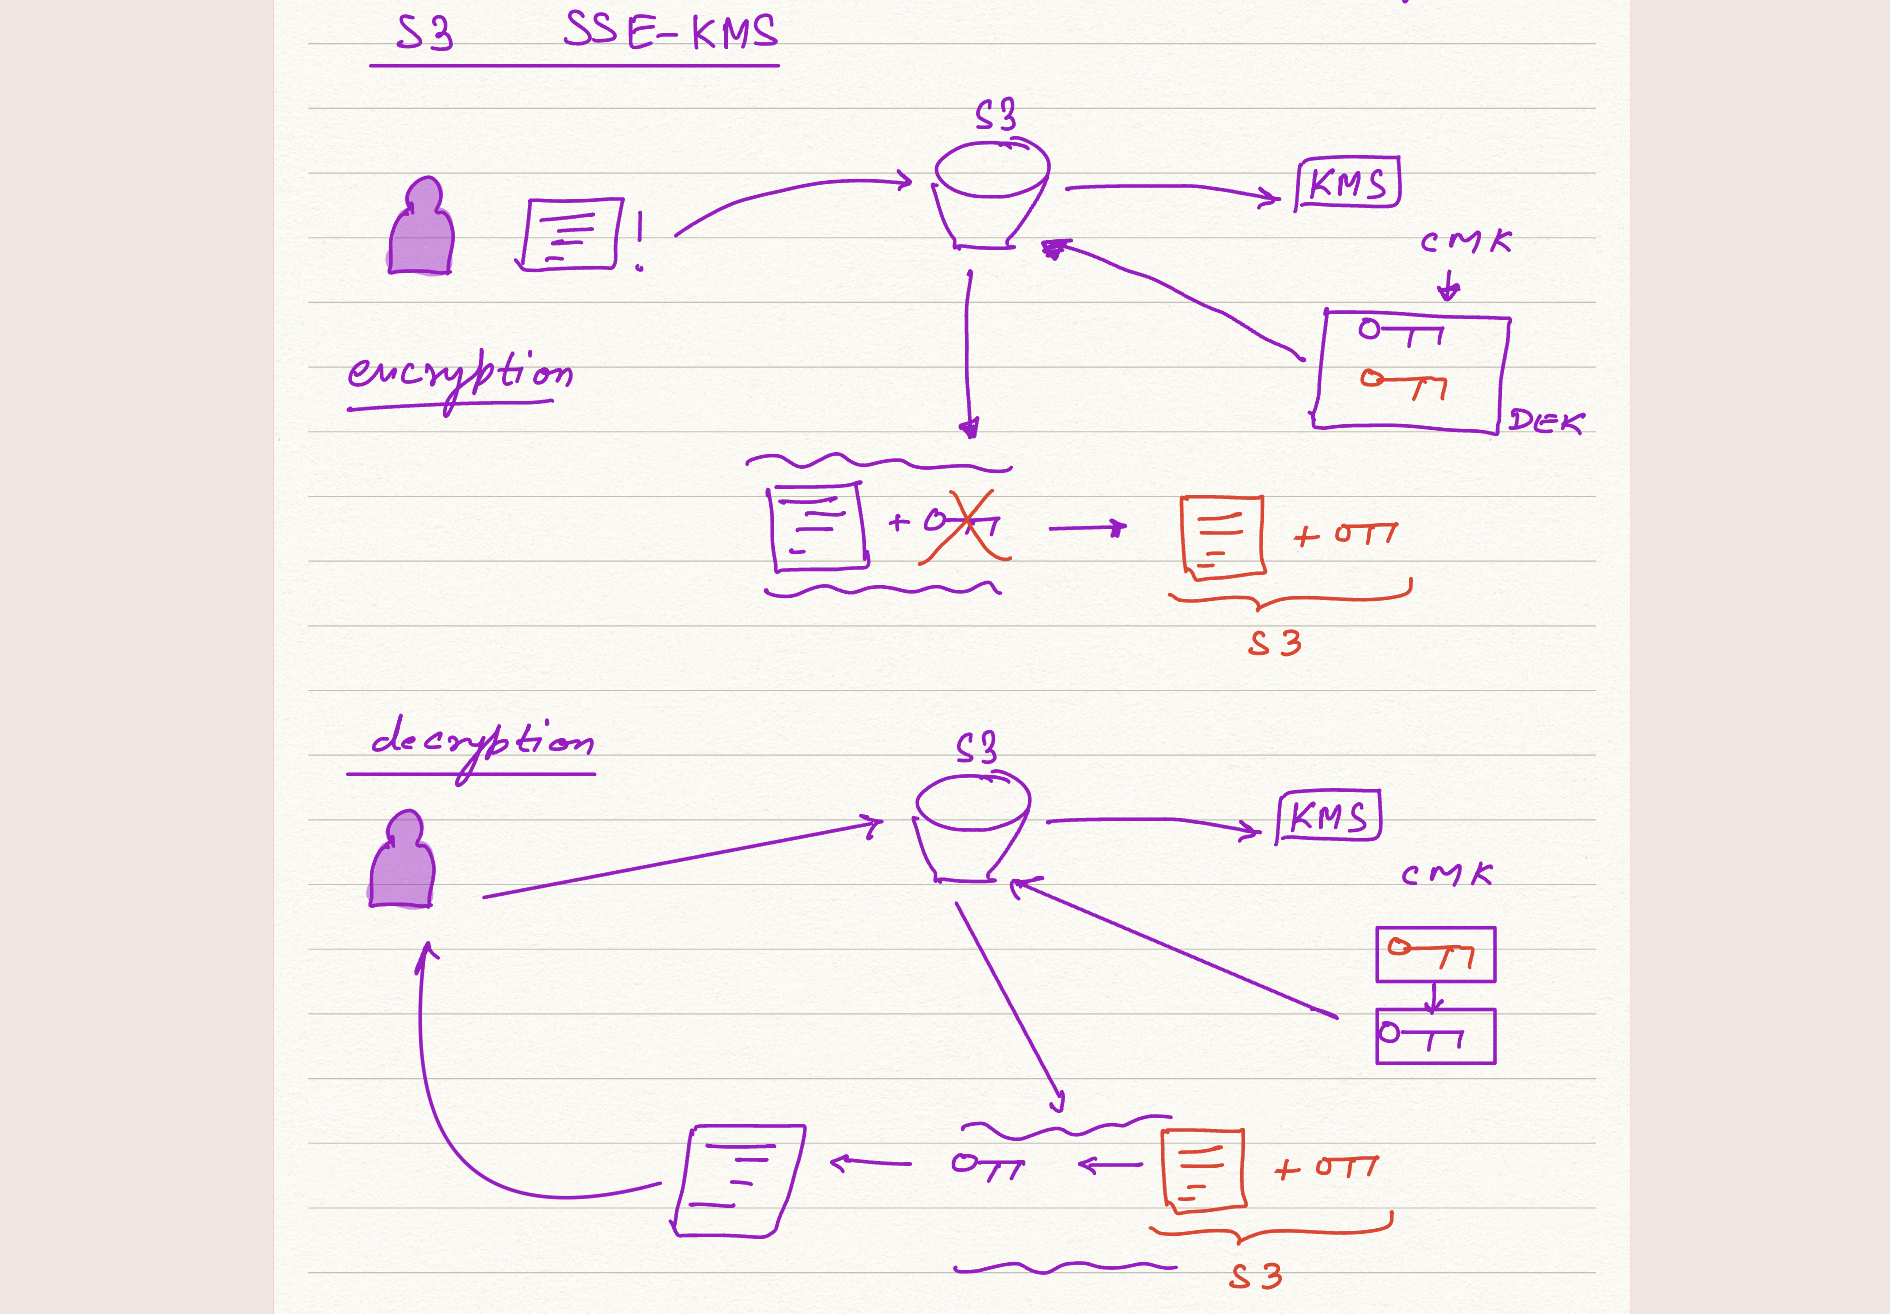 S3 SSE-KMS
S3
KMS
!
CMK
encryption
DEK
+
+
S3
decryption
S3
KMS
CMK
+
S3